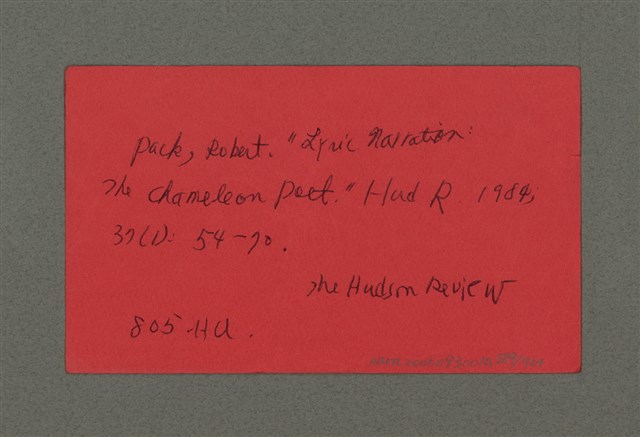 Pack, Robert. "Lyric Narration:
The Chameleon Poet." Hud R 1984;
37(1): 54-70.
The Hudson Review
805-HU.